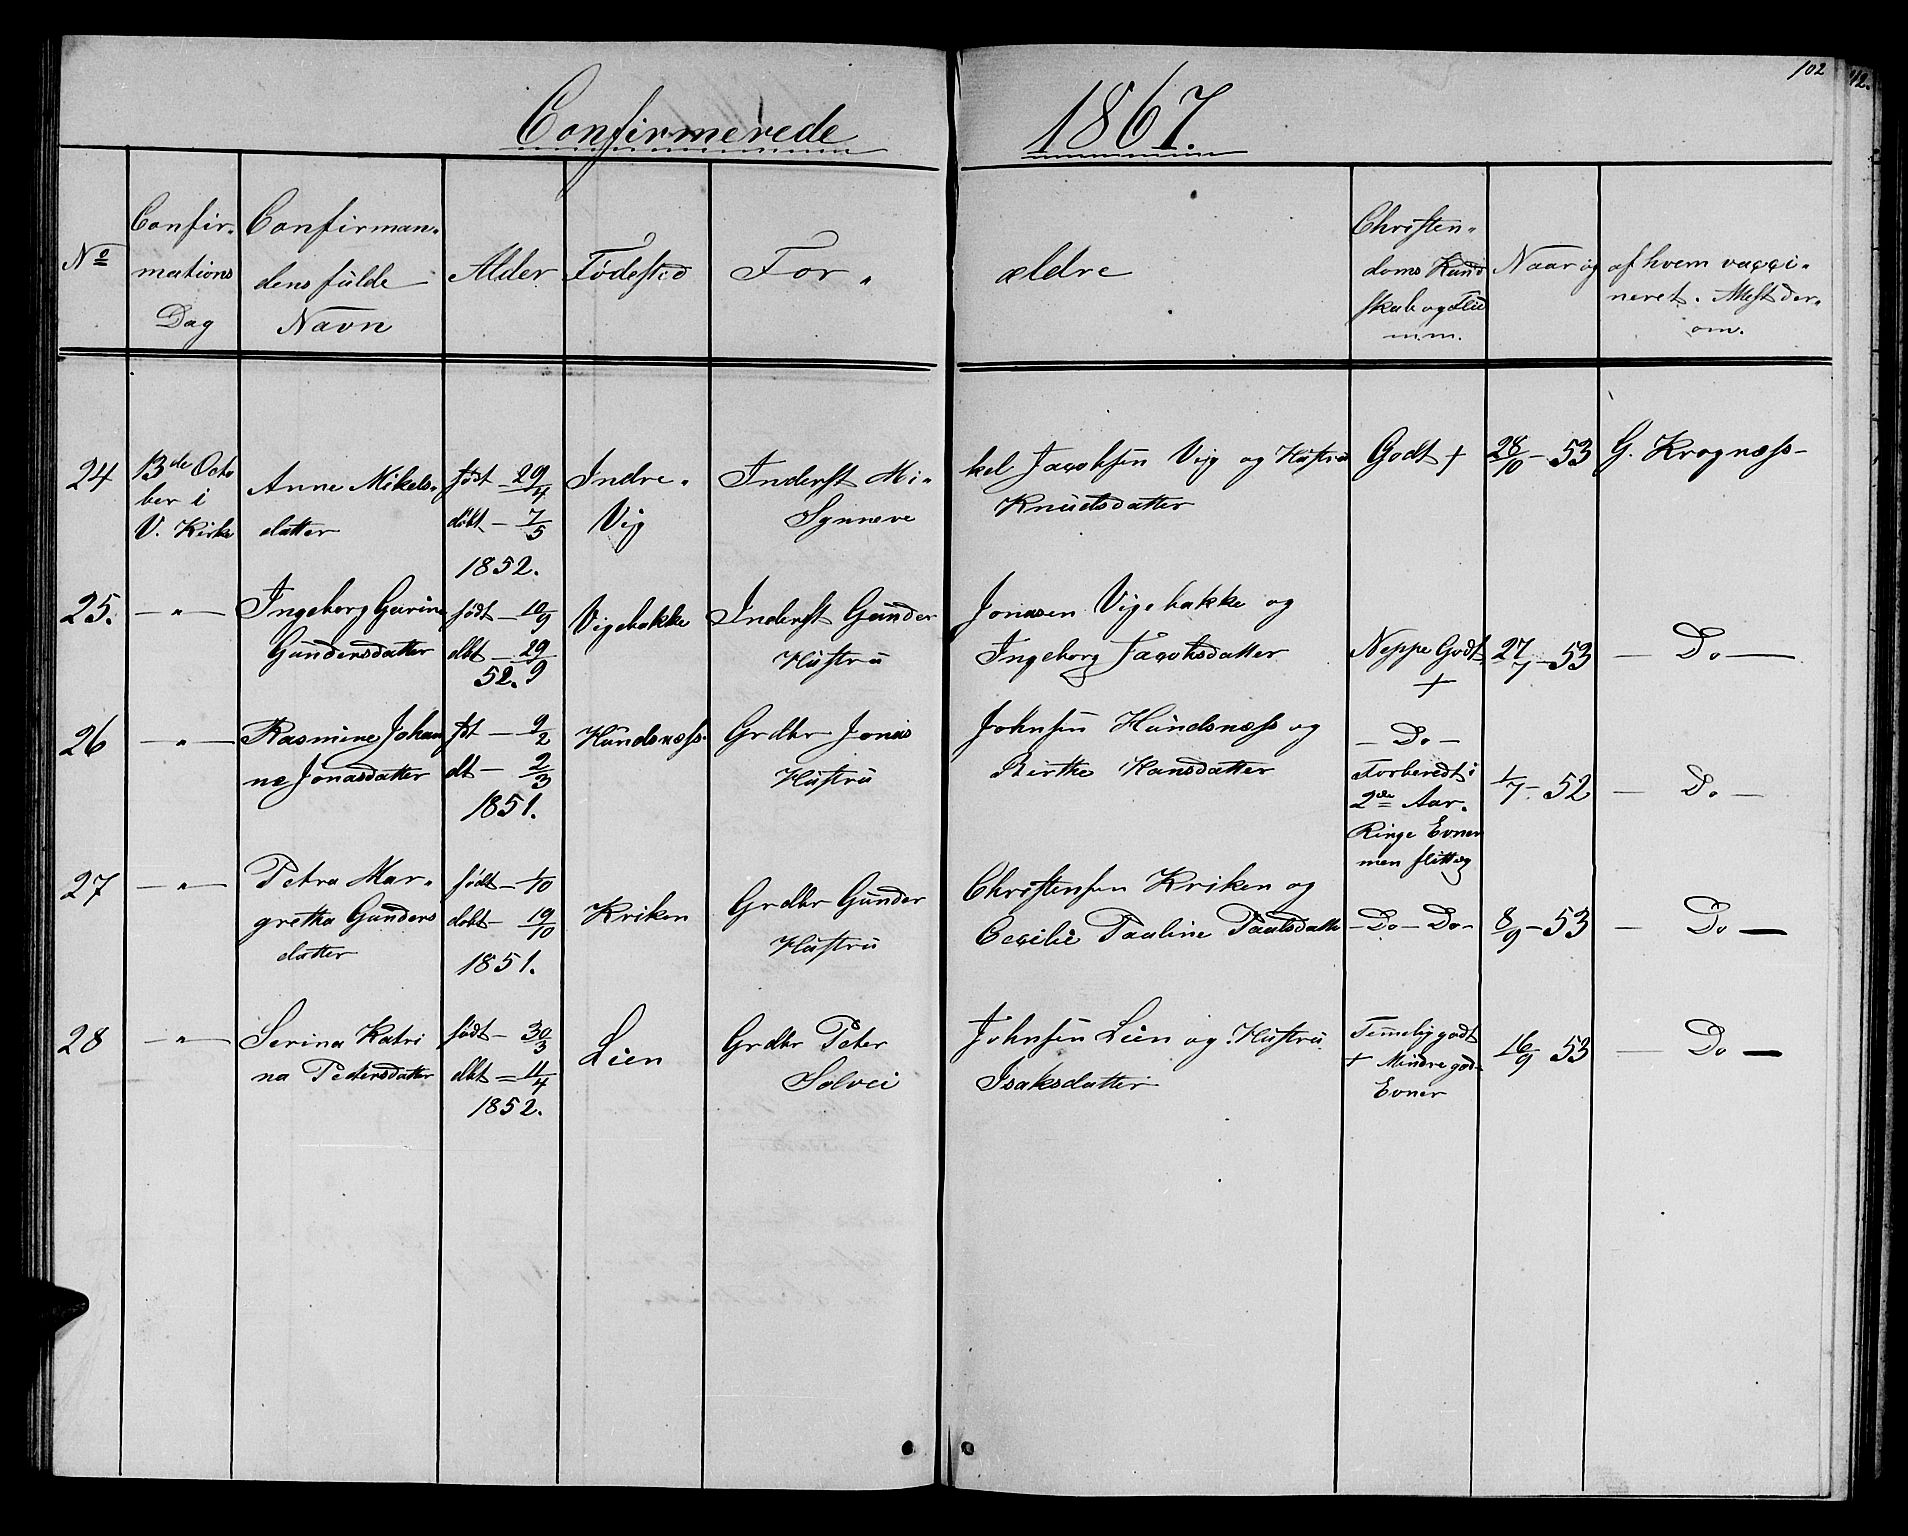 102
42.
Confirmerede 1867.
Nº
Confir-
mations
Dag
Confirman-
dens fulde
Navn
Alder
Fødested
For-
ældre
Christen-
doms Kund
skab og Flid
m.m.
Naar og
af hvem vacci-
neret. Attest der-
om.
24
13de Octo
ber i
V. Kirke
Anne Mikels-
datter
født - 29/4
døbt - 7/5
1852.
Indre-
Vig
Inderst Mi-
Synneve
kel Jacobsen Vig og Hustru
Knudtsdatter
Godt +
28/10 - 53
G. Krognæss-
25.
— " —
Ingeborg Gurine
Gundersdatter
født - 10/9
dbt - 29/9
52.
Vigebakke
Inderst Gunder
Hustru
Jonasen Vigebakke og
Ingeborg Jacobsdatter
Neppe Godt
+
27/7 - 53
— Do —
26
— " —
Rasmine Johan
ne Jonasdatter
fdt - 9/2
dt - 2/3
1851.
Hundsnæss.
Grdbr Jonas
Hustru
Johnsen Hundsnæss og
Birthe Hansdatter
— Do —
Forberedt i
2de Aar.
Ringe Evner
men flittig
1/7 - 52
— Do —
27
— " —
Petra Mar-
gretha Gunders
datter
født - 1/10
døbt - 19/10
1851.
Kriken
Grdbr Gunder
Hustru
Christensen Kriken og
Cecilie Pauline Paulsdatte
— Do — Do —
8/9 - 53
— Do —
28
— " —
Serina Katri
na Pedersdatter
født - 30/3
dbt - 11/4
1852.
Lien
Grdbr Peter
Solvei
Johnsen Lien og Hustru
Isaksdatter
Temelig godt
+ Mindre gode
Evner
16/9 53
— Do —